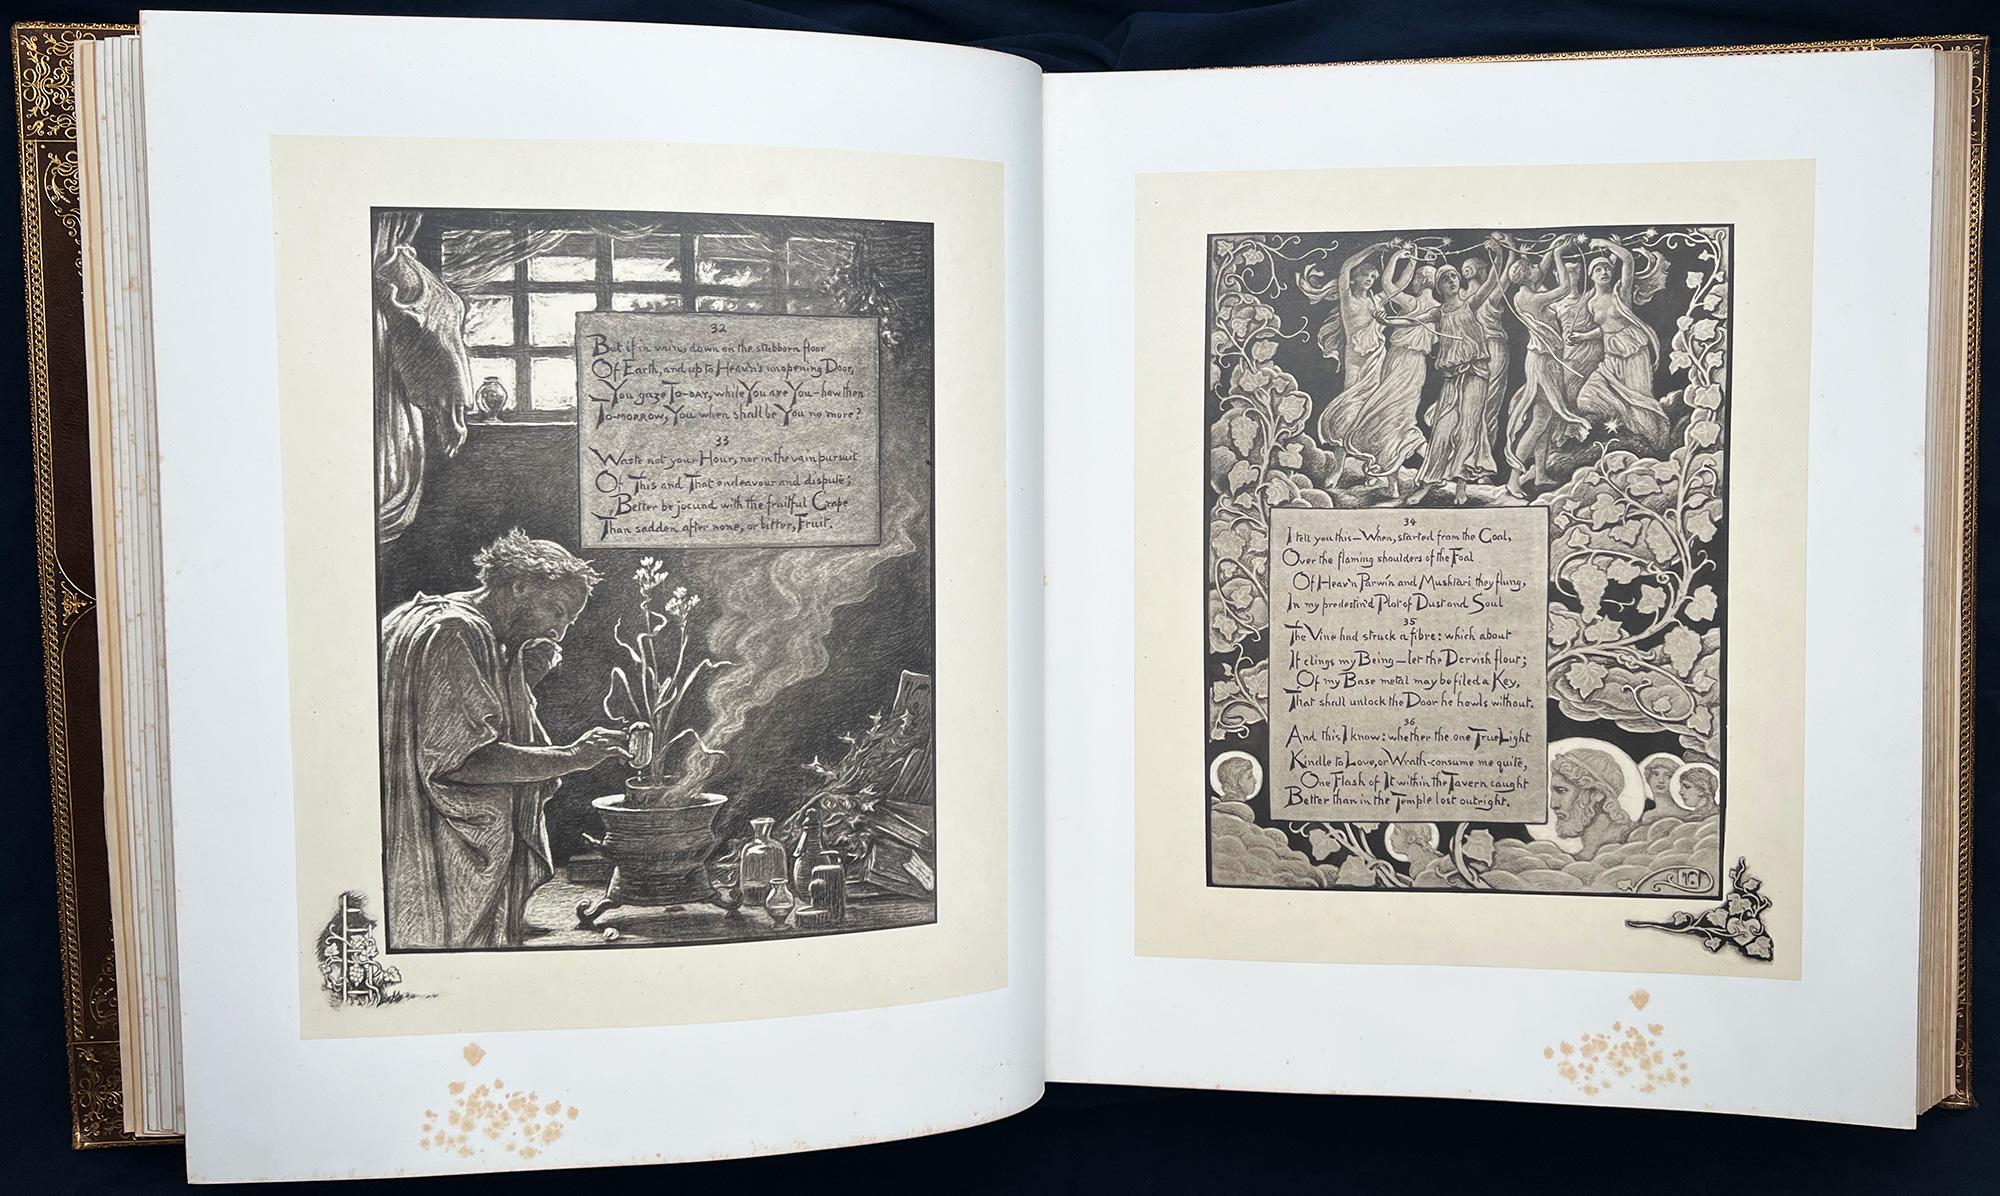 32
But if in vain, down on the stubborn floor
Of Earth, and up to Heav'n's unopening Door,
You gaze To-DAY, while You are You—how then
To-MORROW, You when shall be You no more?
33
Waste not your Hour, nor in the vain pursuit
Of This and That endeavour and dispute;
Better be jocund with the fruitful Grape
Than sadden after none, or bitter, Fruit.
34
I tell you this—When, started from the Goal,
Over the flaming shoulders of the Foal
Of Heav'n Parwin and Mushtari they flung,
In my predestin'd Plot of Dust and Soul
35
The Vine had struck a fibre: which about
If clings my Being—let the Dervish flout;
Of my Base metal may be filed a Key,
That shall unlock the Door he howls without.
36
And this I know: whether the one True Light
Kindle to Love, or Wrath-consume me quite,
One Flash of It within the Tavern caught
Better than in the Temple lost outright.